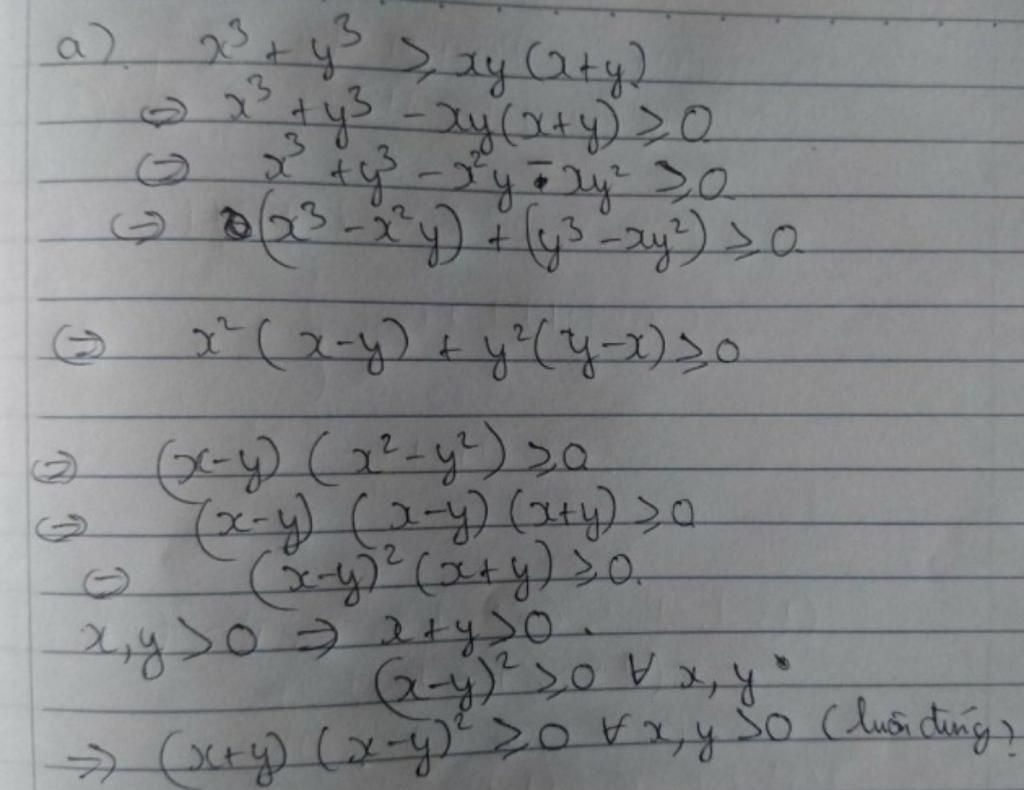 a) x³ + y³ ≥ xy(x+y)
⇔ x³ + y³ - xy(x+y) ≥ 0
⇔ x³ + y³ - x²y - xy² ≥ 0
⇔ (x³ - x²y) + (y³ - xy²) ≥ 0
⇔ x²(x-y) + y²(y-x) ≥ 0
⇔ (x-y)(x²-y²) ≥ 0
⇔ (x-y)(x-y)(x+y) ≥ 0
⇔ (x-y)²(x+y) ≥ 0.
x,y > 0 ⇒ x+y > 0.
(x-y)² ≥ 0 ∀ x,y
⇒ (x+y)(x-y)² ≥ 0 ∀ x,y > 0 (luôn đúng)